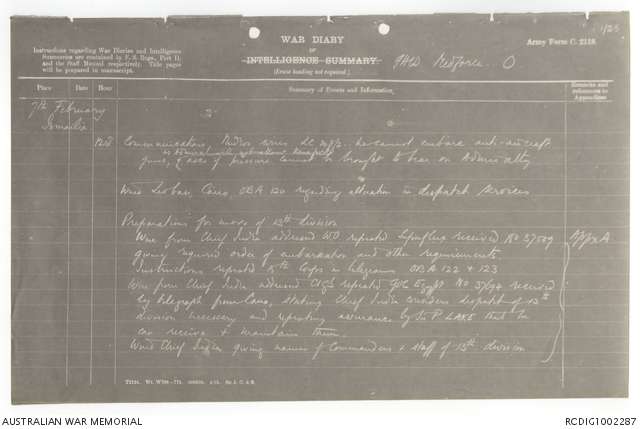 WAR DIARY
or
INTELLIGENCE SUMMARY.
(Erase heading not required.)
Instructions regarding War Diaries and Intelligence
Summaries are contained in F. S. Regs., Part II.
and the Staff Manual respectively. Title pages
will be prepared in manuscript.
Army Form C. 2118.
GHQ Medforce O
Place
Date
Hour
Summary of Events and Information
Remarks and
references to
Appendices
7th February
Ismailia
Communications, wires he cannot embark anti-aircraft
guns, & pressure cannot be brought to bear on Admiralty
Wired Cairo, OBA 120 regarding alteration in despatch services
Preparations for move of 13th division
Appx A
Wire from Chief India addressed WO repeated received No 57509
giving required order of embarkation and other requirements
Instructions repeated Corps in telegrams OBA 122 & 123
Wire from Chief India, addressed CIGS repeated GOC Egypt No received
by telegraph from Cairo, stating Chief India considers despatch of 13th
division necessary and repeating assurance by Sir P. LAKE that he
can receive & maintain them.
Wired Chief India giving names of Commanders & staff of 13th division
AUSTRALIAN WAR MEMORIAL
RCDIG1002287